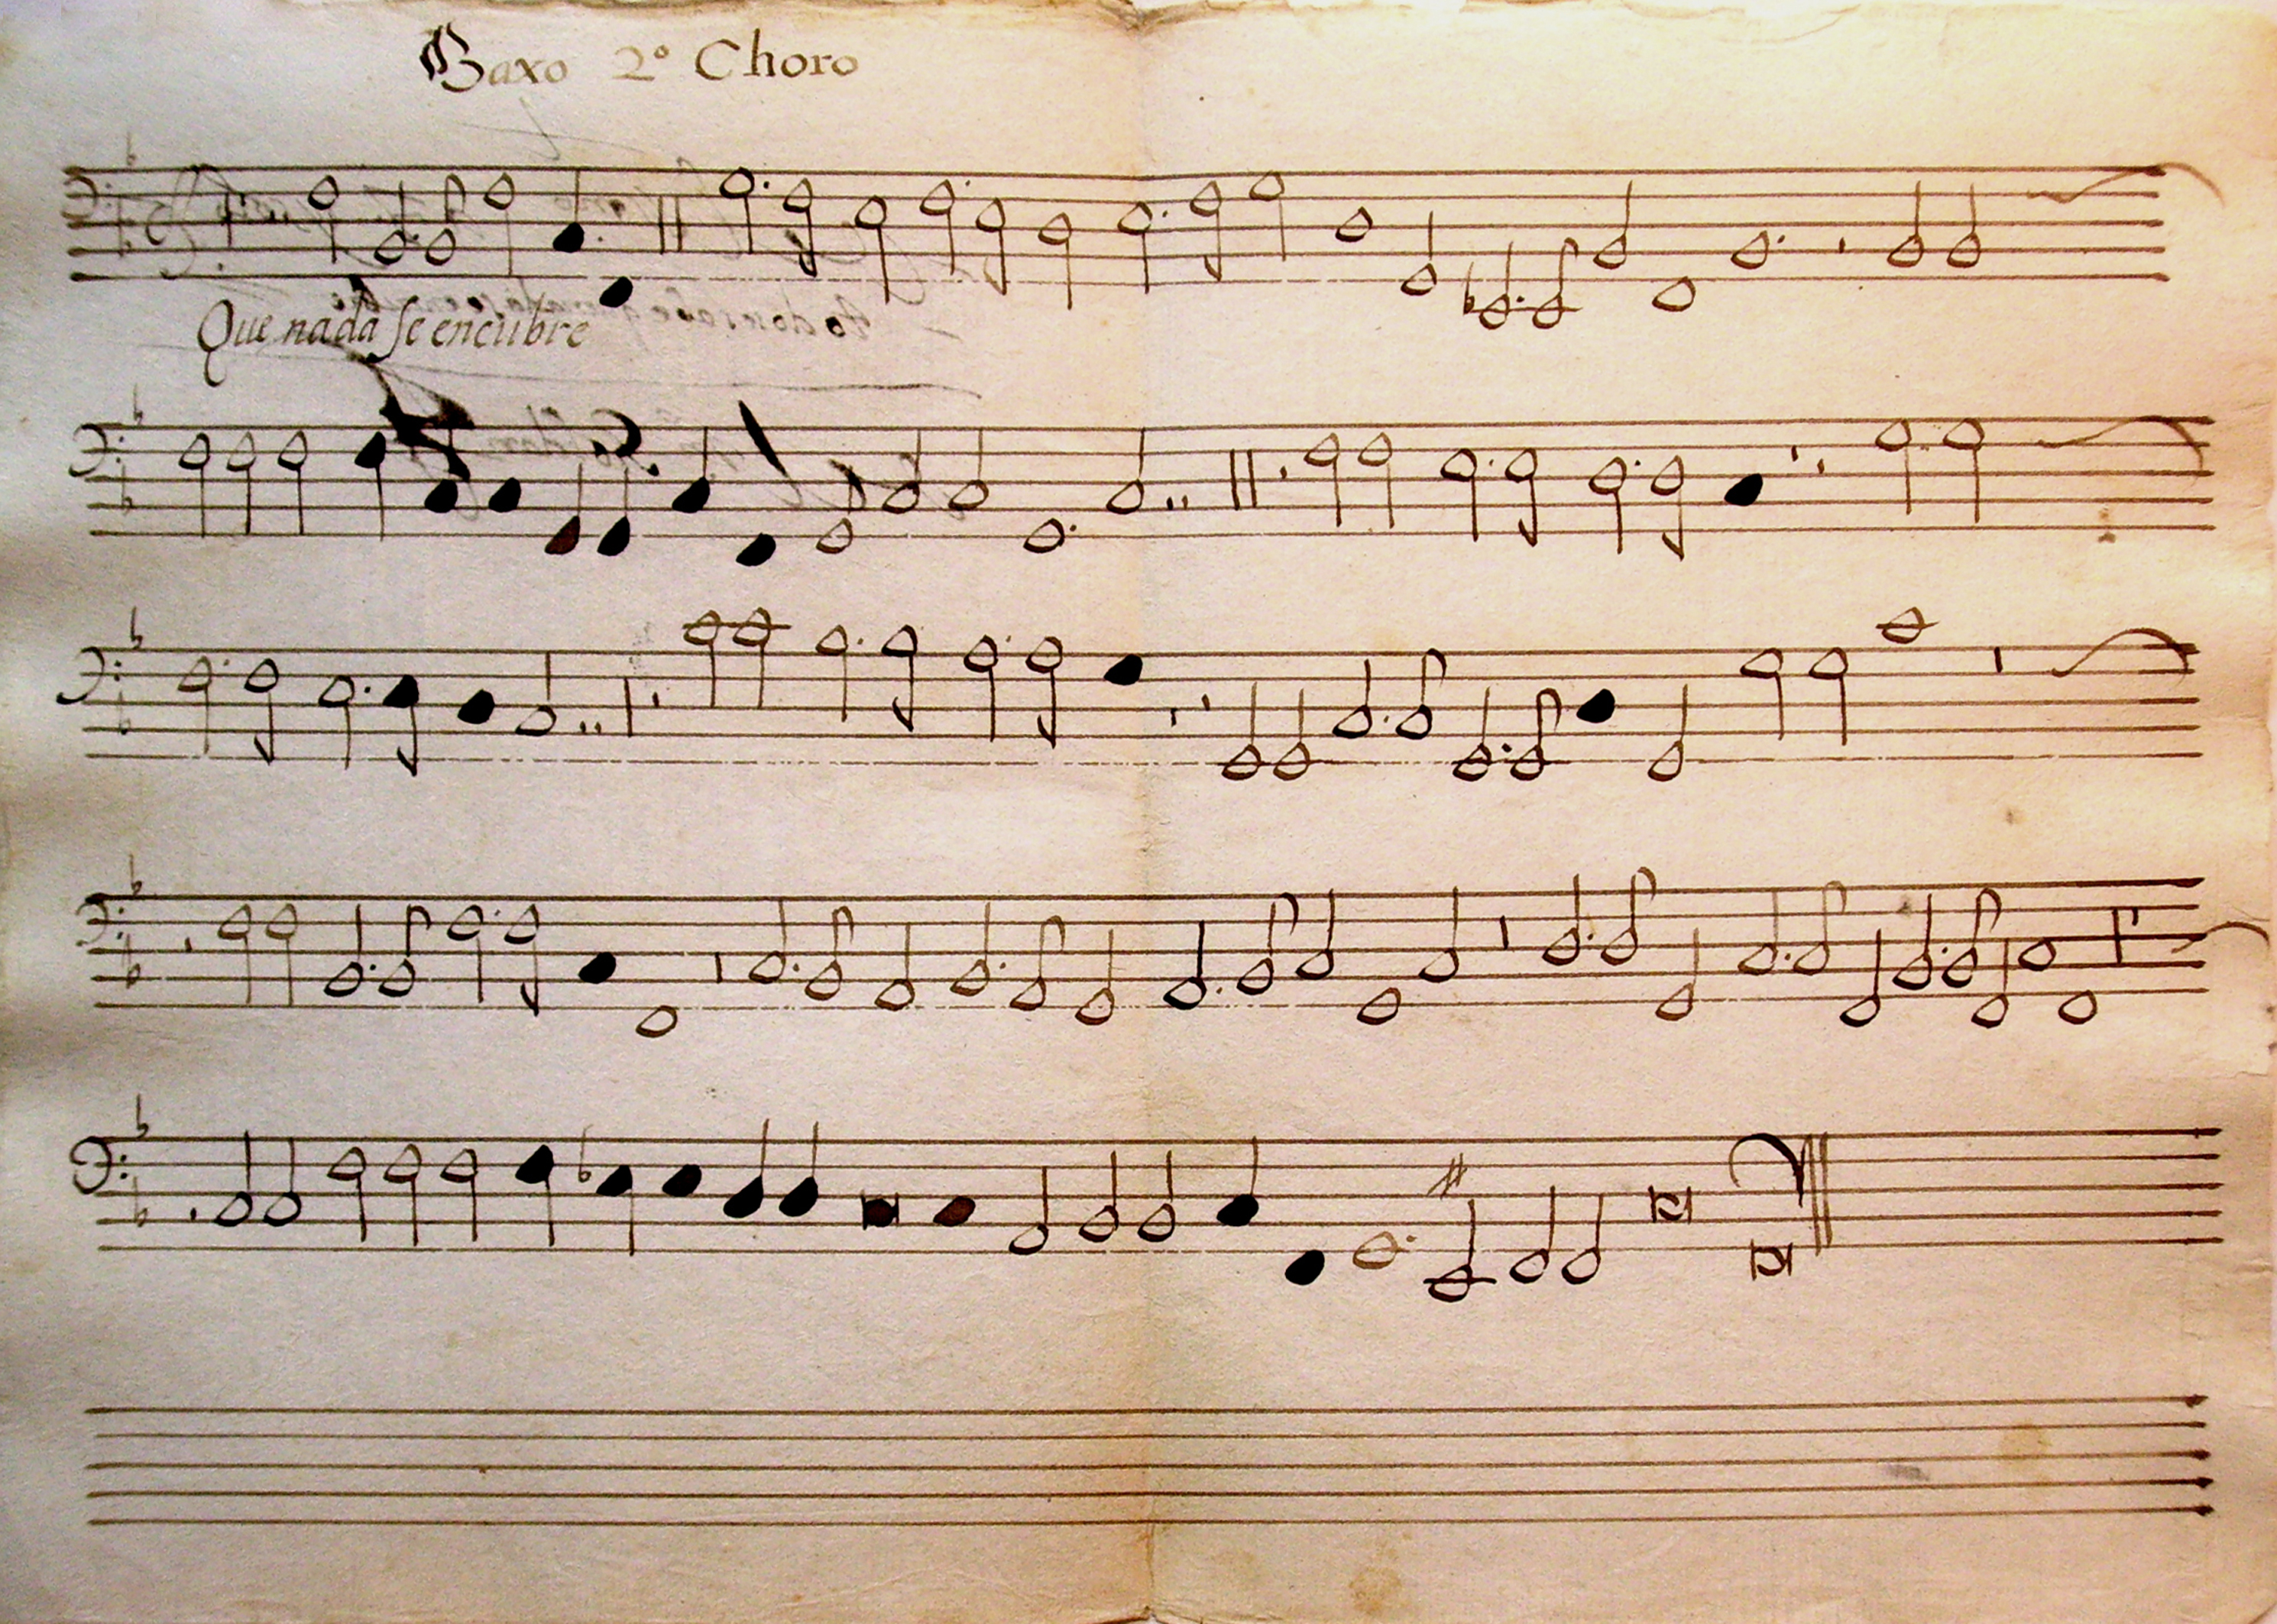 Baxo 2º Choro
Que nada se encubre